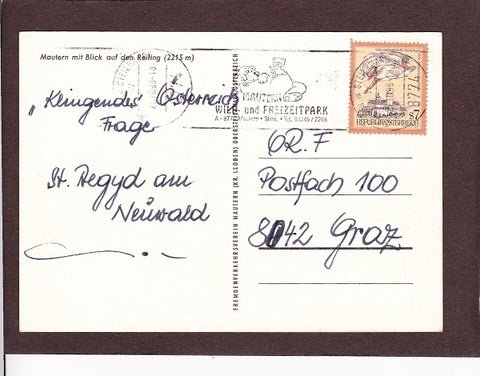 Mautern mit Blick auf den Reiting (2215 m)
MAUTERN
WILD- und FREIZEITPARK
Mautern - Stmk. - Tel. 03845/2268
8774
S7
REPUBLIK ÖSTERREICH
„Klingendes Österreich
Frage
St. Aegyd am
Neuwald
FREMDENVERKEHRSVEREIN MAUTERN (KR. LEOBEN) OBERSTEIERMARK ÖSTERREICH
O.R.F
Postfach 100
8042 Graz